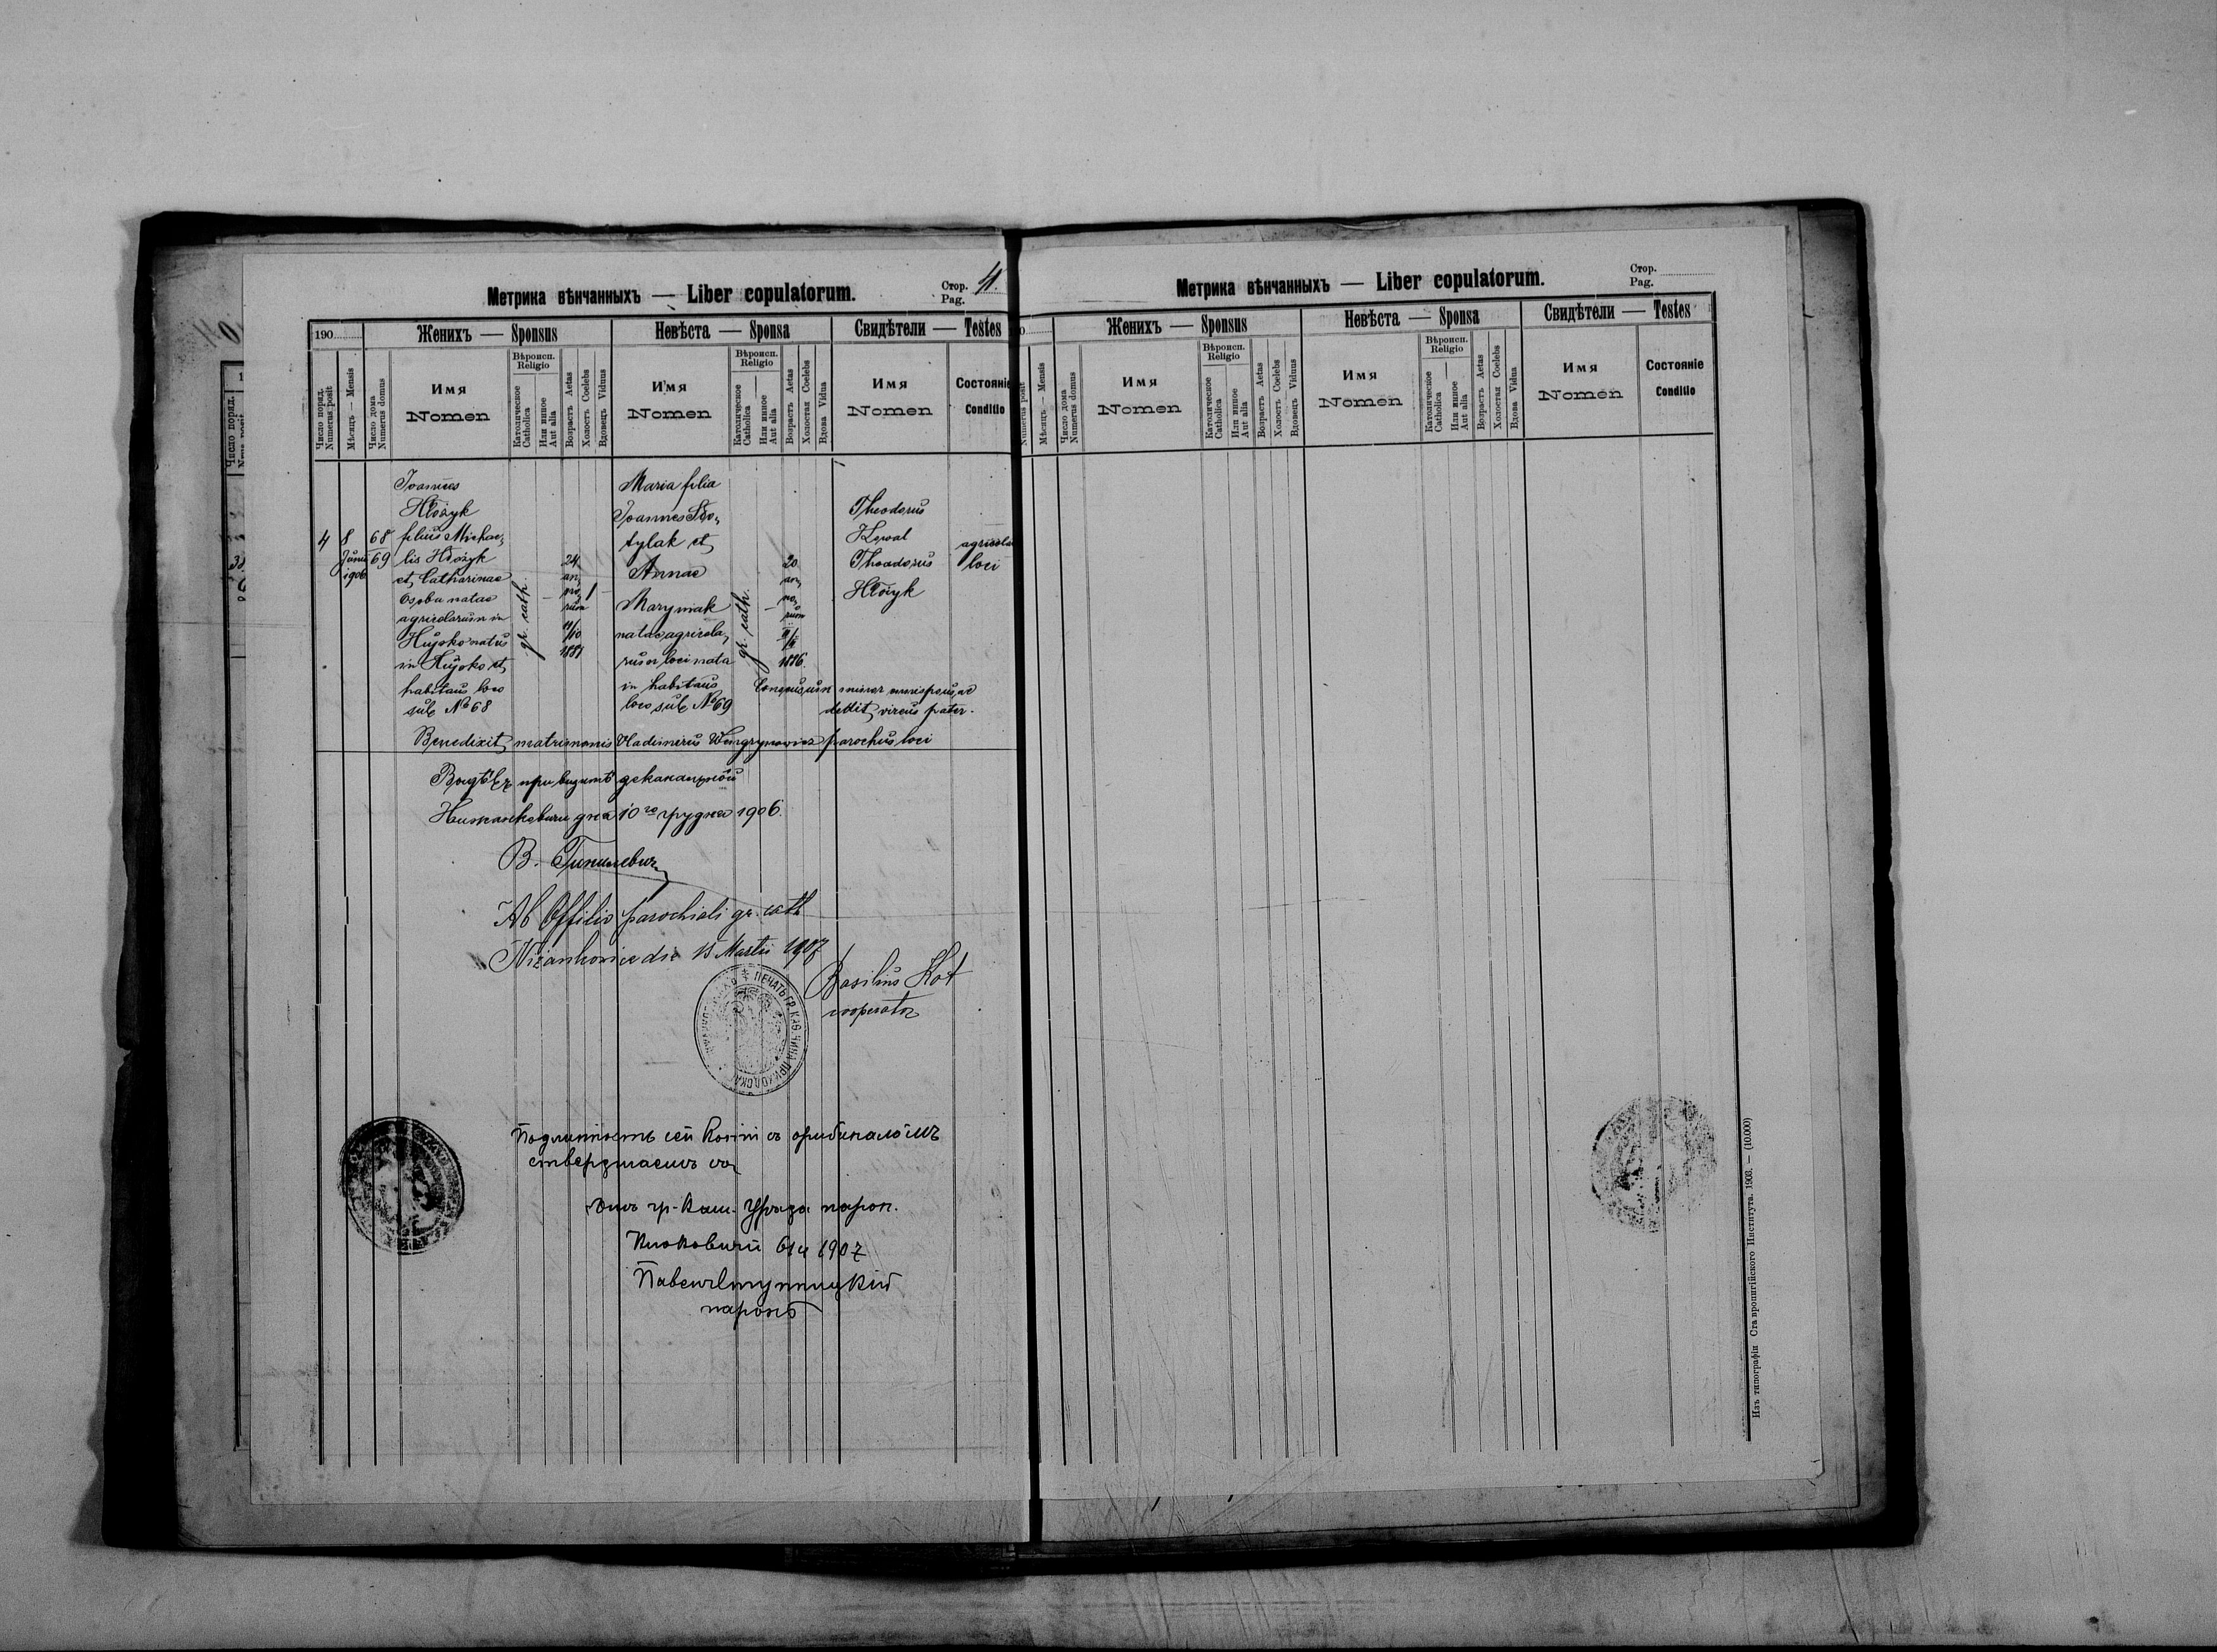 Метрика вѣнчанныхъ — Liber copulatorum.
Стор.
Pag. 4.
190
Женихъ — Sponsus
Невѣста — Sponsa
Свидѣтели — Testes
Число поряд.
Numerus posit
Мѣсяцъ — Mensis
Число дома
Numerus domus
Имя
Nomen
Вѣроисп.
Religio
Католическое
Catholica
Или инное
Aut alia
Возрастъ Aetas
Холостъ Coelebs
Вдовецъ Viduus
Имя
Nomen
Вѣроисп.
Religio
Католическое
Catholica
Или инное
Aut alia
Возрастъ Aetas
Холостая Coelebs
Вдова Vidua
Имя
Nomen
Состояніе
Conditio
4
8
Junii
1906
68
69
Joannes
Hłożyk
filius Michae-
lis Hłożyk
et Catharinae
Osoba natae
agricolarum in
Hujsko natus
in Hujsko et
habitans loco
sub No 68
gr. cath.
24
an-
no-
rum
11/10
1881
Maria filia
Joannes
tylak et
Annae
Maryniak
natae agricola-
rum loci nata
in habitans
loco sub No 69
gr. cath.
20
an-
no-
rum
1886
Theodorus
Kowal
Theodorus
Hłożyk
agricolae
loci
dedit pater.
Benedixit matrimonis Vladimirus Wengrynowicz parochus loci
Видѣвъ при визитѣ деканальной
Нижанковичи дня 10го грудня 1906.
В.
Ab Officio parochiali gr. cath
Niżankowice die 15 Martii 1907
Basilius Kot
cooperator
ПЕЧАТЬ ГР. КАѲ. ЧИНА ПРИХОДСКА
Подлинность сей копіи съ оригиналомъ
стверджаемъ
Отъ гр.-кат. Уряда парох.
Кнюковичи 6/4 1907
парохъ
Метрика вѣнчанныхъ — Liber copulatorum.
Стор.
Pag.
Женихъ — Sponsus
Невѣста — Sponsa
Свидѣтели — Testes
Numerus posit
Мѣсяцъ — Mensis
Число дома
Numerus domus
Имя
Nomen
Вѣроисп.
Religio
Католическое
Catholica
Или инное
Aut alia
Возрастъ Aetas
Холостъ Coelebs
Вдовецъ Viduus
Имя
Nomen
Вѣроисп.
Religio
Католическое
Catholica
Или инное
Aut alia
Возрастъ Aetas
Холостая Coelebs
Вдова Vidua
Имя
Nomen
Состояніе
Conditio
Изъ типографіи Ставропигійского Института. 1903. — (10.000)